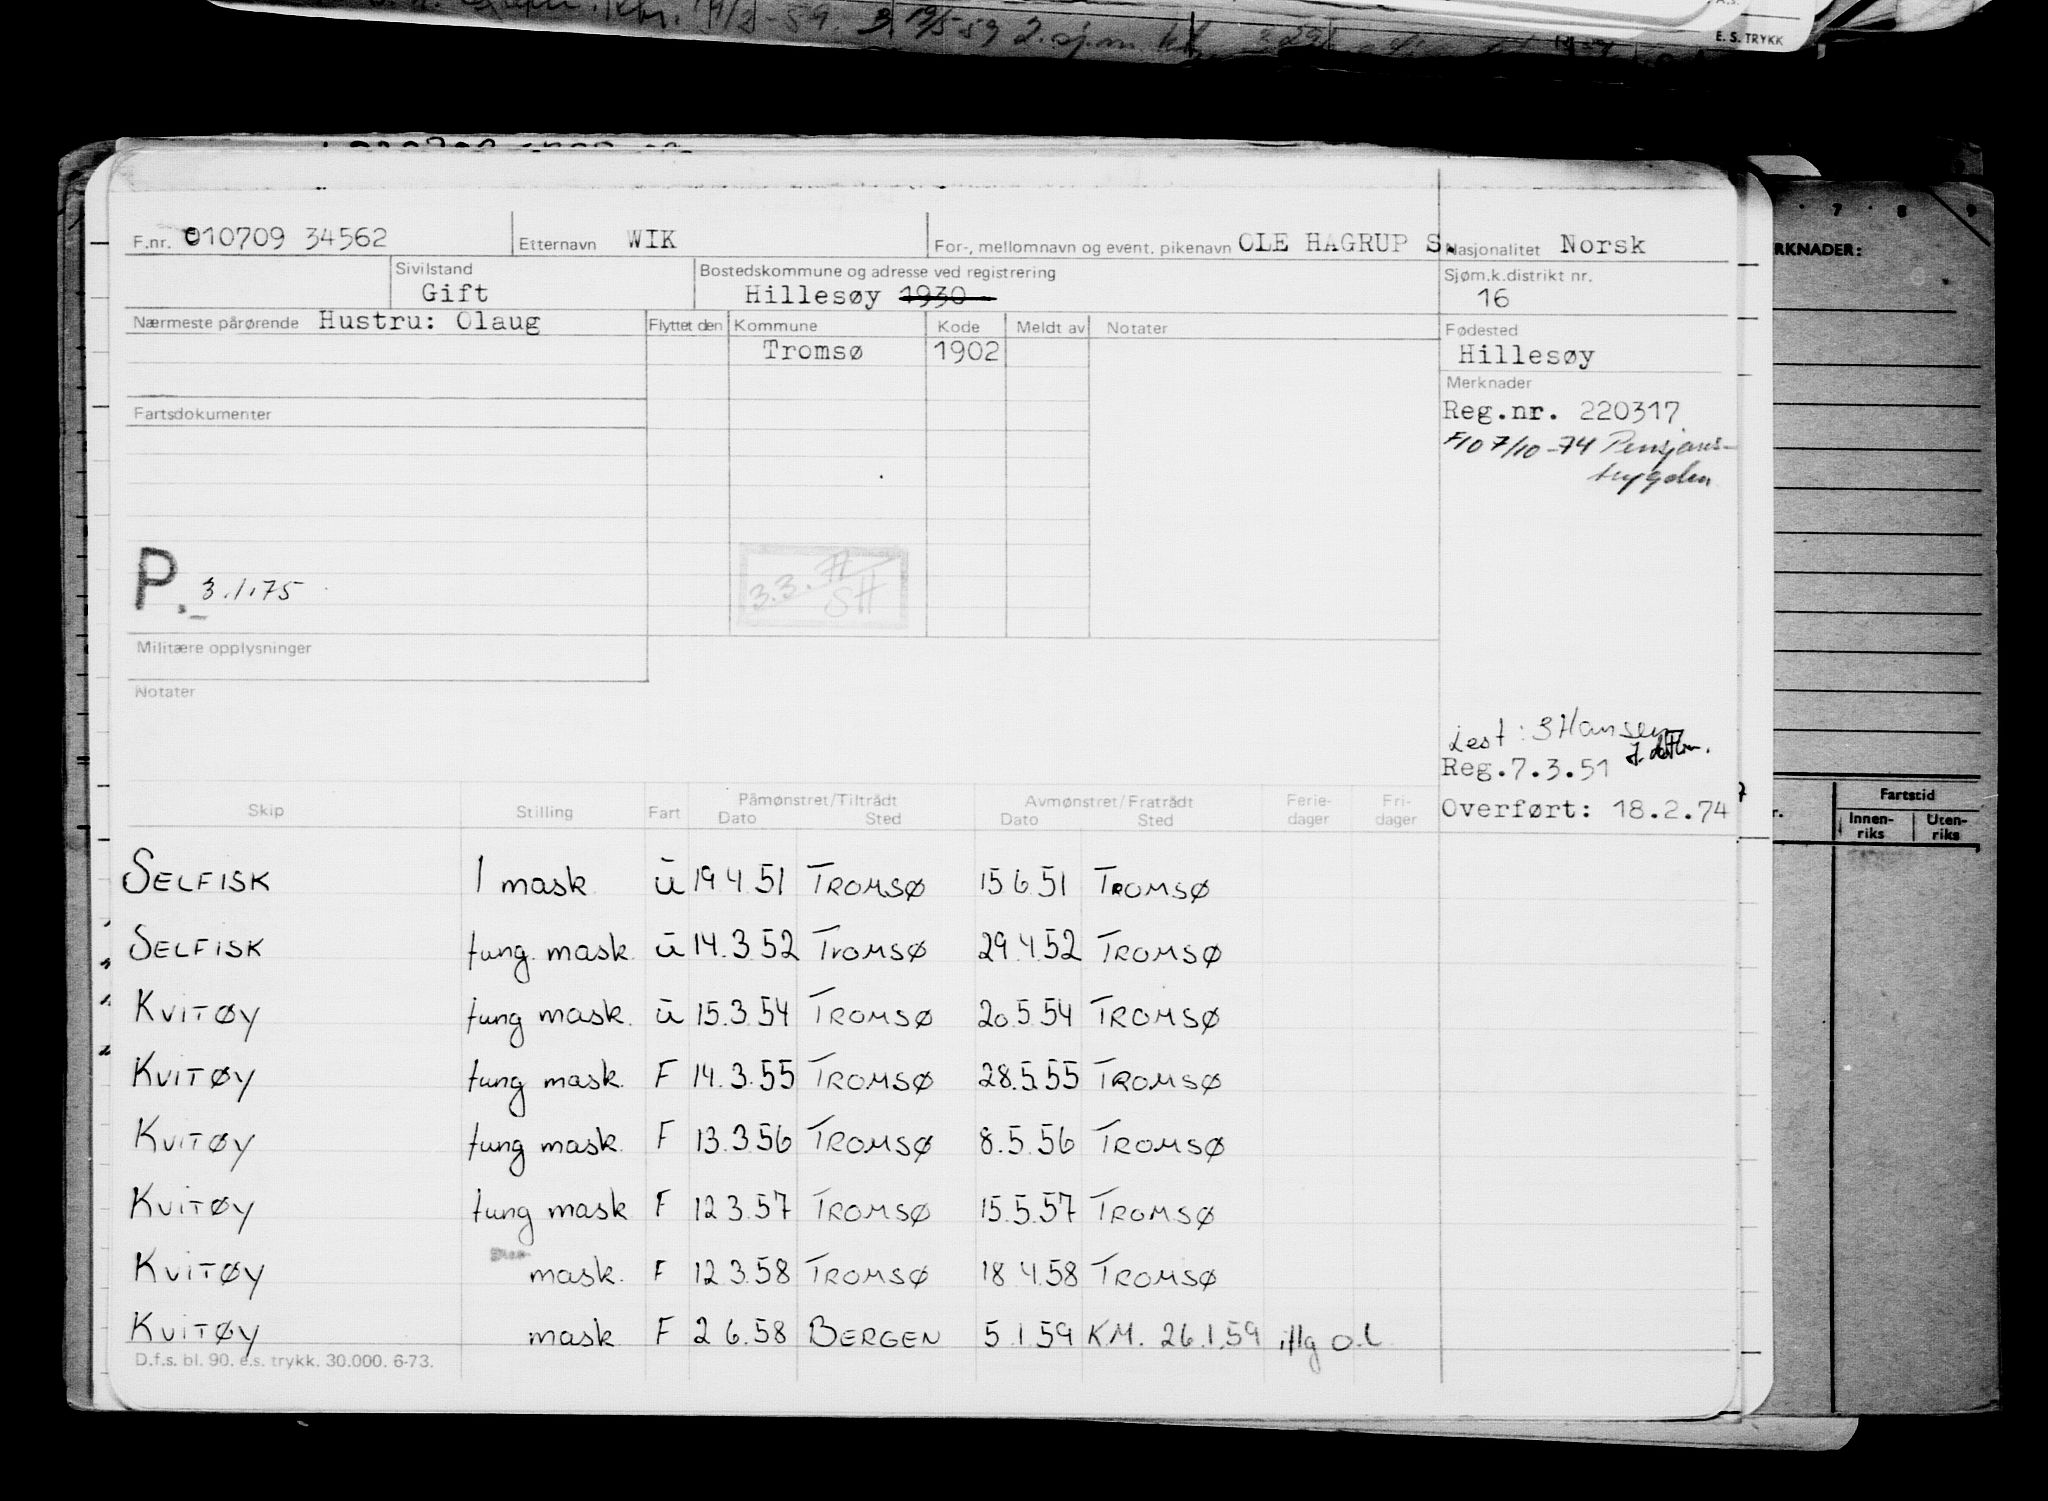 E. S. TRYKK
F.nr. 010709 34562 Etternavn WIK For-, mellomnavn og event. pikenavn OLE HAGRUP S. Nasjonalitet Norsk
Sivilstand Gift Bostedskommune og adresse ved registrering Hillesøy 1930 Sjøm.k.distrikt nr. 16
Nærmeste pårørende Hustru: Olaug Flyttet den Kommune Kode Meldt av Notater Fødested
Tromsø 1902 Hillesøy
Merknader
Fartsdokumenter Reg.nr. 220317
F10 7/10-74 Pensjons-
trygden
P. 3.1.75
3.3. SH
Militære opplysninger
Notater
Lest: S Hansen
Reg.7.3.51
Skip Stilling Fart Påmønstret/Tiltrådt Dato Sted Avmønstret/Fratrådt Dato Sted Ferie-dager Fri-dager Overført: 18.2.74
SELFISK 1 mask ū 19 4.51 TROMSØ 15 6.51 TROMSØ
SELFISK tung. mask. ū 14.3.52 TROMSØ 29.4.52 TROMSØ
KVITØY tung mask. ū 15.3.54 TROMSØ 20.5.54 TROMSØ
KVITØY tung mask. F 14.3.55 TROMSØ 28.5.55 TROMSØ
KVITØY tung mask. F 13.3.56 TROMSØ 8.5.56 TROMSØ
KVITØY tung mask F 12.3.57 TROMSØ 15.5.57 TROMSØ
KVITØY mask. F 12.3.58 TROMSØ 18 4.58 TROMSØ
KVITØY mask F 2 6.58 BERGEN 5.1.59 KM. 26.1.59 iflg o.l.
D.f.s. bl. 90. e.s. trykk. 30.000. 6-73.
7 8 9
RKNADER:
Fartstid
Innen-riks Uten-riks